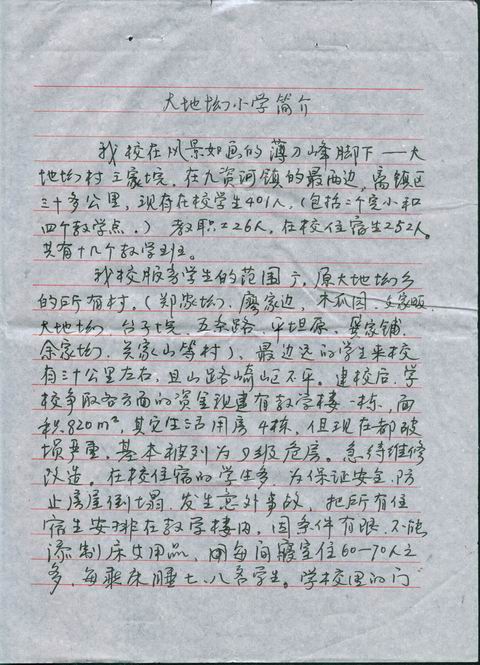 大地坳小学简介
我校在风景如画的薄刀峰脚下——大
地坳村王家垸,在九资河镇的最西边,离镇区
三十多公里,现存在校学生401人,(包括二个完小和
四个教学点。)教职工26人,在校住宿生252人。
共有十几个教学班。
我校服务学生的范围广,原大地坳乡
的所有村。(郑家坳、廖家边、木瓜园、
大地坳、台子垸、五条路、平坦原、龚家铺、
余家坳、吴家山等村),最边远的学生来校
有三十公里左右,且山路崎岖不平。建校后,学
校争取各方面的资金现建有教学楼一栋,面
积820m²,其它生活用房4栋,但现在都破
损严重,基本被列为D级危房。急待维修
改造。在校住宿的学生多,为保证安全,防
止房屋倒塌,发生意外事故,把所有住
宿生安排在教学楼内,因条件有限,不能
添制床上用品,每间寝室住60—70人之
多,每张床睡七、八名学生。学校里的门